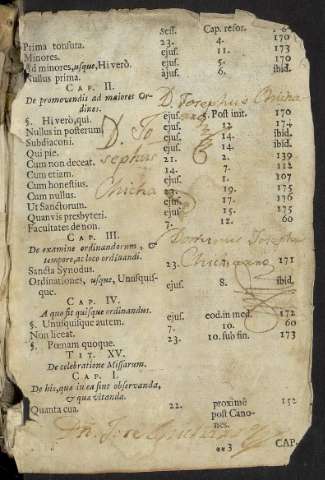 Sess. Cap. refor.
Prima tonsura. 23. 4. 170
Minores. ejus. 11. 173
Ad minores, usque, Hi verò. ejus. 5. 170
Nullus prima. ajus. 6. ibid.
CAP. II.
De promovendis ad maiores Ordines.
D. Josephus Chicha
§. Hi verò, qui. ejus. 5. Post init. 170
Nullus in posterum. 174
D. Jo
Subdiaconi. ibid.
Qui pie. 14. ibid.
sephus
Cum non deceat. 21. 2. 139
Cum etiam. 7. 14. 112
Cum honestius. ejus. 1. 107
Chicha
Cum nullus. 23. 19. 175
Ut Sanctorum. ejus. 17. 176
Quanvis presbyteri. ejus. 15. 175
Facultates de non. 7. 12. 60
CAP. III.
De examine ordinandorum, &
tempore, ac loco ordinandi.
Sancta Synodus. 23. 171
Ordinationes, usque, Unusquisque. ejus. 8. ibid.
CAP. IV.
A quo sit quisque ordinandus.
§. Unusquisque autem. ejus. eod. in med. 172
Non liceat. 7. 10. 60
§. Pœnam quoque. 23. 10. sub fin. 173
TIT. XV.
De celebratione Missarum.
CAP. I.
De his, quæ in ea sint observanda,
& quæ vitanda.
Quanta cua. 22. proximè 152
post Canones.
**3 CAP-